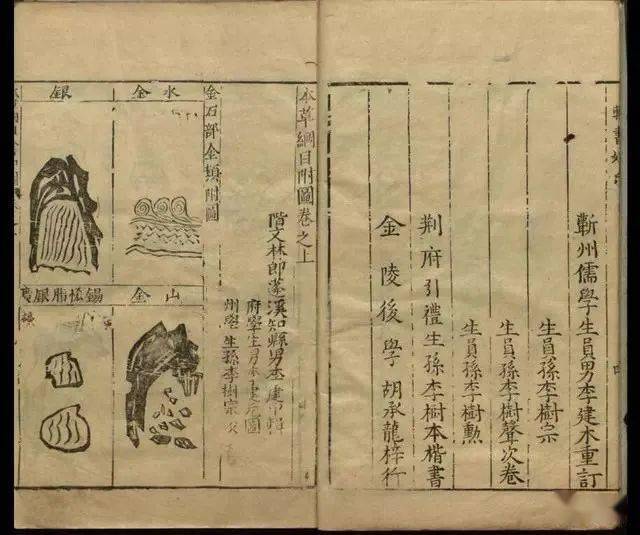 蘄州儒學生員男李建木重訂
生員孫李樹宗
生員孫李樹聲次卷
生員孫李樹勳
荆府引禮生孫李樹本楷書
金陵後學胡承龍梓行
本草綱目附圖卷之上
階文林郎蓬溪知縣男李建中輯
府學生男李建元圖
州學生孫李樹宗
金石部金類附圖
水金
銀
山金
錫恡脂銀